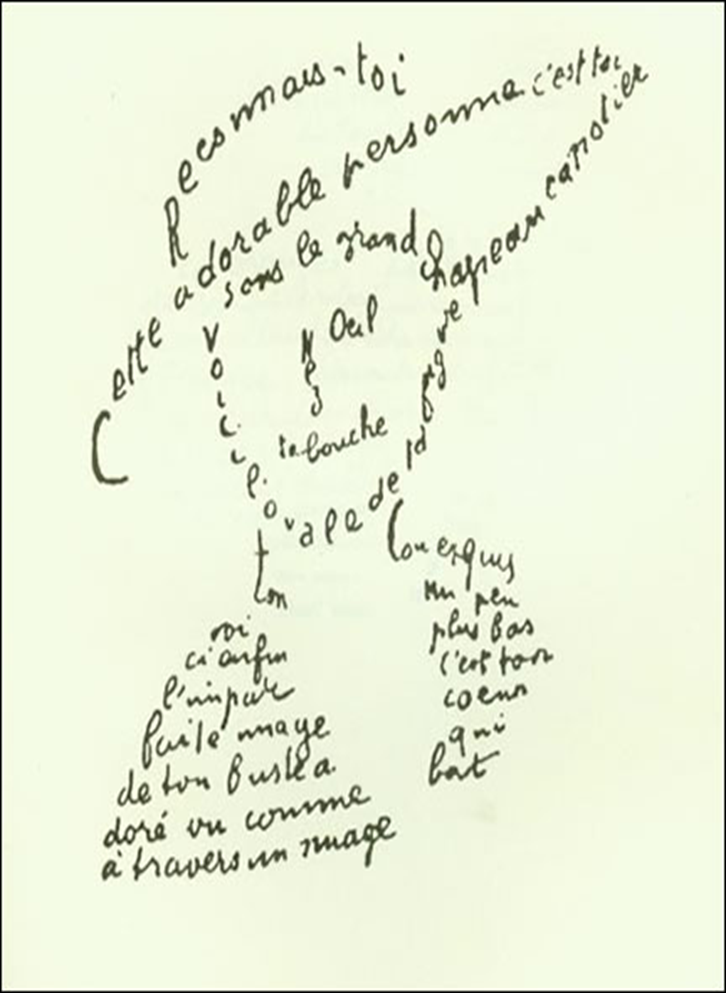 Reconnais-toi
Cette adorable personne c'est toi
sous le grand chapeau canotier
Oeil
Nez
ta bouche
Voici l'ovale de ta figure
ton Cou exquis
voi
ci enfin
l'impar
faite image
de ton buste a
doré vu comme
à travers un nuage
un peu
plus bas
c'est ton
coeur
qui
bat